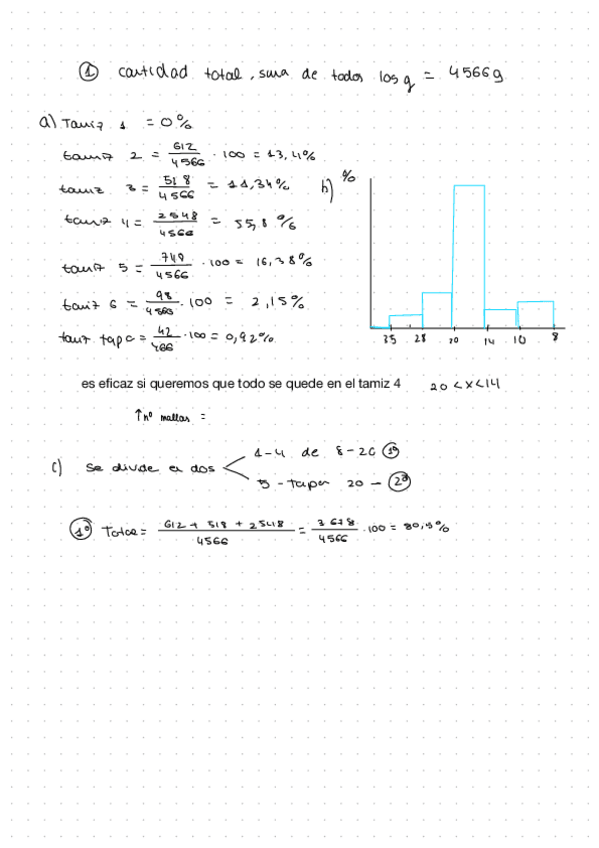 ① cantidad total, suma de todos los g = 4566g
a) Tamiz 1 = 0%
tamiz 2 = 612/4566 · 100 = 13,4%
tamiz 3 = 518/4566 = 11,34%
b) %
tamiz 4 = 2548/4566 = 55,8%
tamiz 5 = 748/4566 · 100 = 16,38%
tamiz 6 = 98/4566 · 100 = 2,15%
tamiz tapa = 42/466 · 100 = 0,92%
35 28 20 14 10 8
es eficaz si queremos que todo se quede en el tamiz 4 20 < x < 14
↑nº mallas =
c) se divide en dos
1-4 de 8-20 1º
5-tapa 20 - 2º
1º Total = 612 + 518 + 2548/4566 = 3678/4566 · 100 = 80,5%